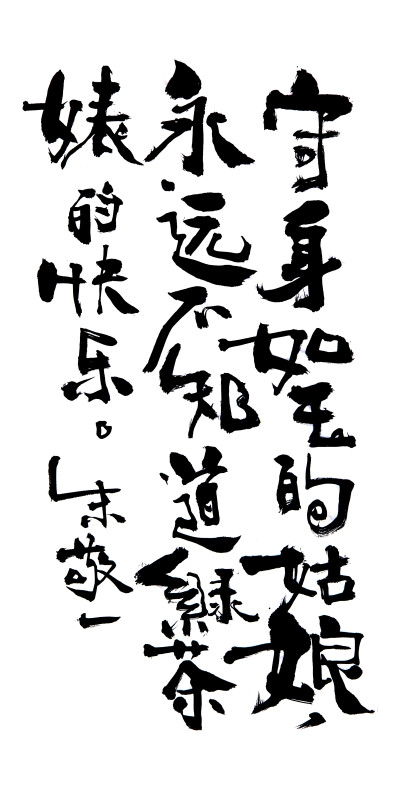 守身如玉的姑娘，
永远不知道綠茶
婊的快乐。
朱敬一